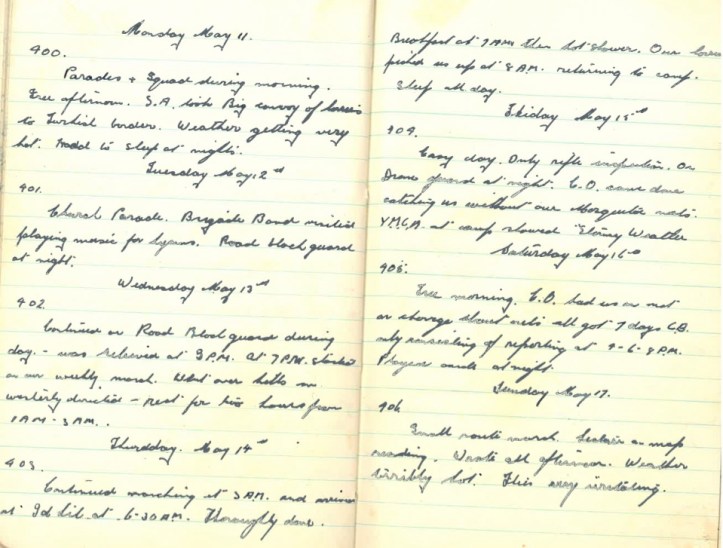 Monday May 11.
400.
Parades & Squad during morning.
Free afternoon. S.A. took Big convoy of lorries
to Turkish border. Weather getting very
hot. Hard to sleep at nights.
Tuesday May 12nd
401.
Church Parade. Brigade Band visited
playing music for hymns. Road block guard
at night.
Wednesday May 13rd
402.
Continued on Road Block guard during
day. - was relieved at 3 P.M. At 7 P.M. started
on our weekly march. Went over hills in
westerly direction - rest for two hours from
1 AM - 3 AM.
Thursday. May 14th
403.
Continued marching at 3 AM. and arrived
at Idlib at 6-30 AM. Thoroughly done.
Breakfast at 7 AM then hot shower. Our lorries
picked us up at 8 AM. returning to camp.
Sleep all day.
Friday May 15th
404.
Easy day. Only rifle inspection. On
guard at night. C.O. came done
catching us without our Mosquito nets.
Y.M.C.A. at camp showed "Stormy Weather
Saturday May 16th
405.
Free morning. C.O. had us on mat
on charge about nets all got 7 days C.B.
only consisting of reporting at 4-6-8 P.M.
Played cards at night.
Sunday May 17.
406
Small route march. Lecture on map
reading. Wrote all afternoon. Weather
terribly hot. Flies very irritating.